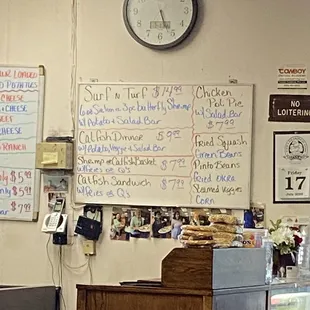 Loaded
POTATOES
CHEESE
& CHEESE
RANCH
only $5
Surf n Turf $14.99
6oz Sirloin w/ 3pc butterfly Shrimp
w/ Potato & Salad Bar
Catfish Dinner $9.99
w/ Potato, Veggie & Salad Bar
Shrimp or Catfish Basket $7.99
w/ Fries
Catfish Sandwich $7.99
w/ Fries or O's
Chicken
Pot Pie
w/ Salad Bar
$7.99
Fried Squash
Green Beans
Pinto Beans
Fried Okra
Steamed Veggies
Corn
COWBOY
NO
LOITERING
Friday
17